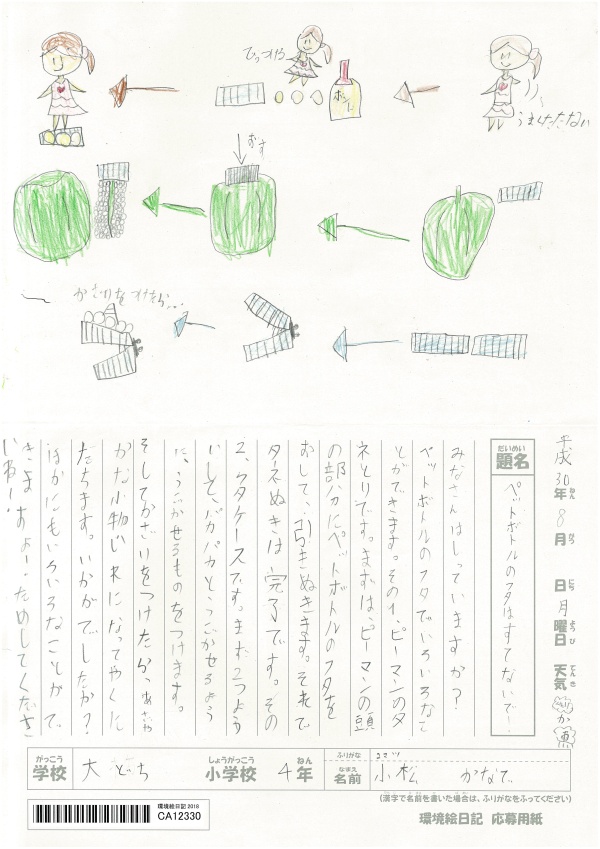 うまくたたない
ボンド
くっつけ
おす
かざりをつけたら…
平成30年8月 日月曜日 天気
ねん
がつ
にち
ようび
てんき
だいめい
題名
ペットボトルのフタはすてないで!
みなさんはしっていますか?
ペットボトルのフタでいろいろなこ
とができます。その1、ピーマンのタ
ネとりです。まずは、ピーマンの頭
の部分にペットボトルのフタを
おして、引きぬきます。それで
タネぬきは完了です。その
2、フタケースです。まず2つよう
いして、パカパカとうごかせるよう
に、うごかせるものをつけます。
そしてかざいをつけたら、
かな小物いれになってやくに
たちます。いかがでしたか?
ほかにもいろいろなことがで
きますよ!ためしてくださ
いね!
がっこう
学校
大どち
しょうがっこう
小学校
4年
ねん
ふりがな
コマツ
なまえ
名前
小松 かなで
(漢字で名前を書いた場合は、ふりがなをふってください)
環境絵日記 2018
CA12330
環境絵日記 応募用紙